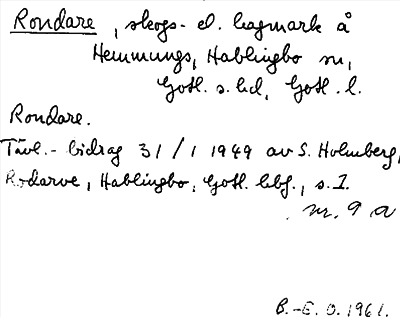 Rondare, skogs- el. hagmark å
Hemmungs, Hablingbo sn,
Gotl. s. hd, Gotl. l.
Rondare.
Tävl.-bidrag 31/1 1949 av S. Holmberg,
Rodarve, Hablingbo, Gotl. hbf., s. 1.
nr. 9 a
B.-E. O. 1961.